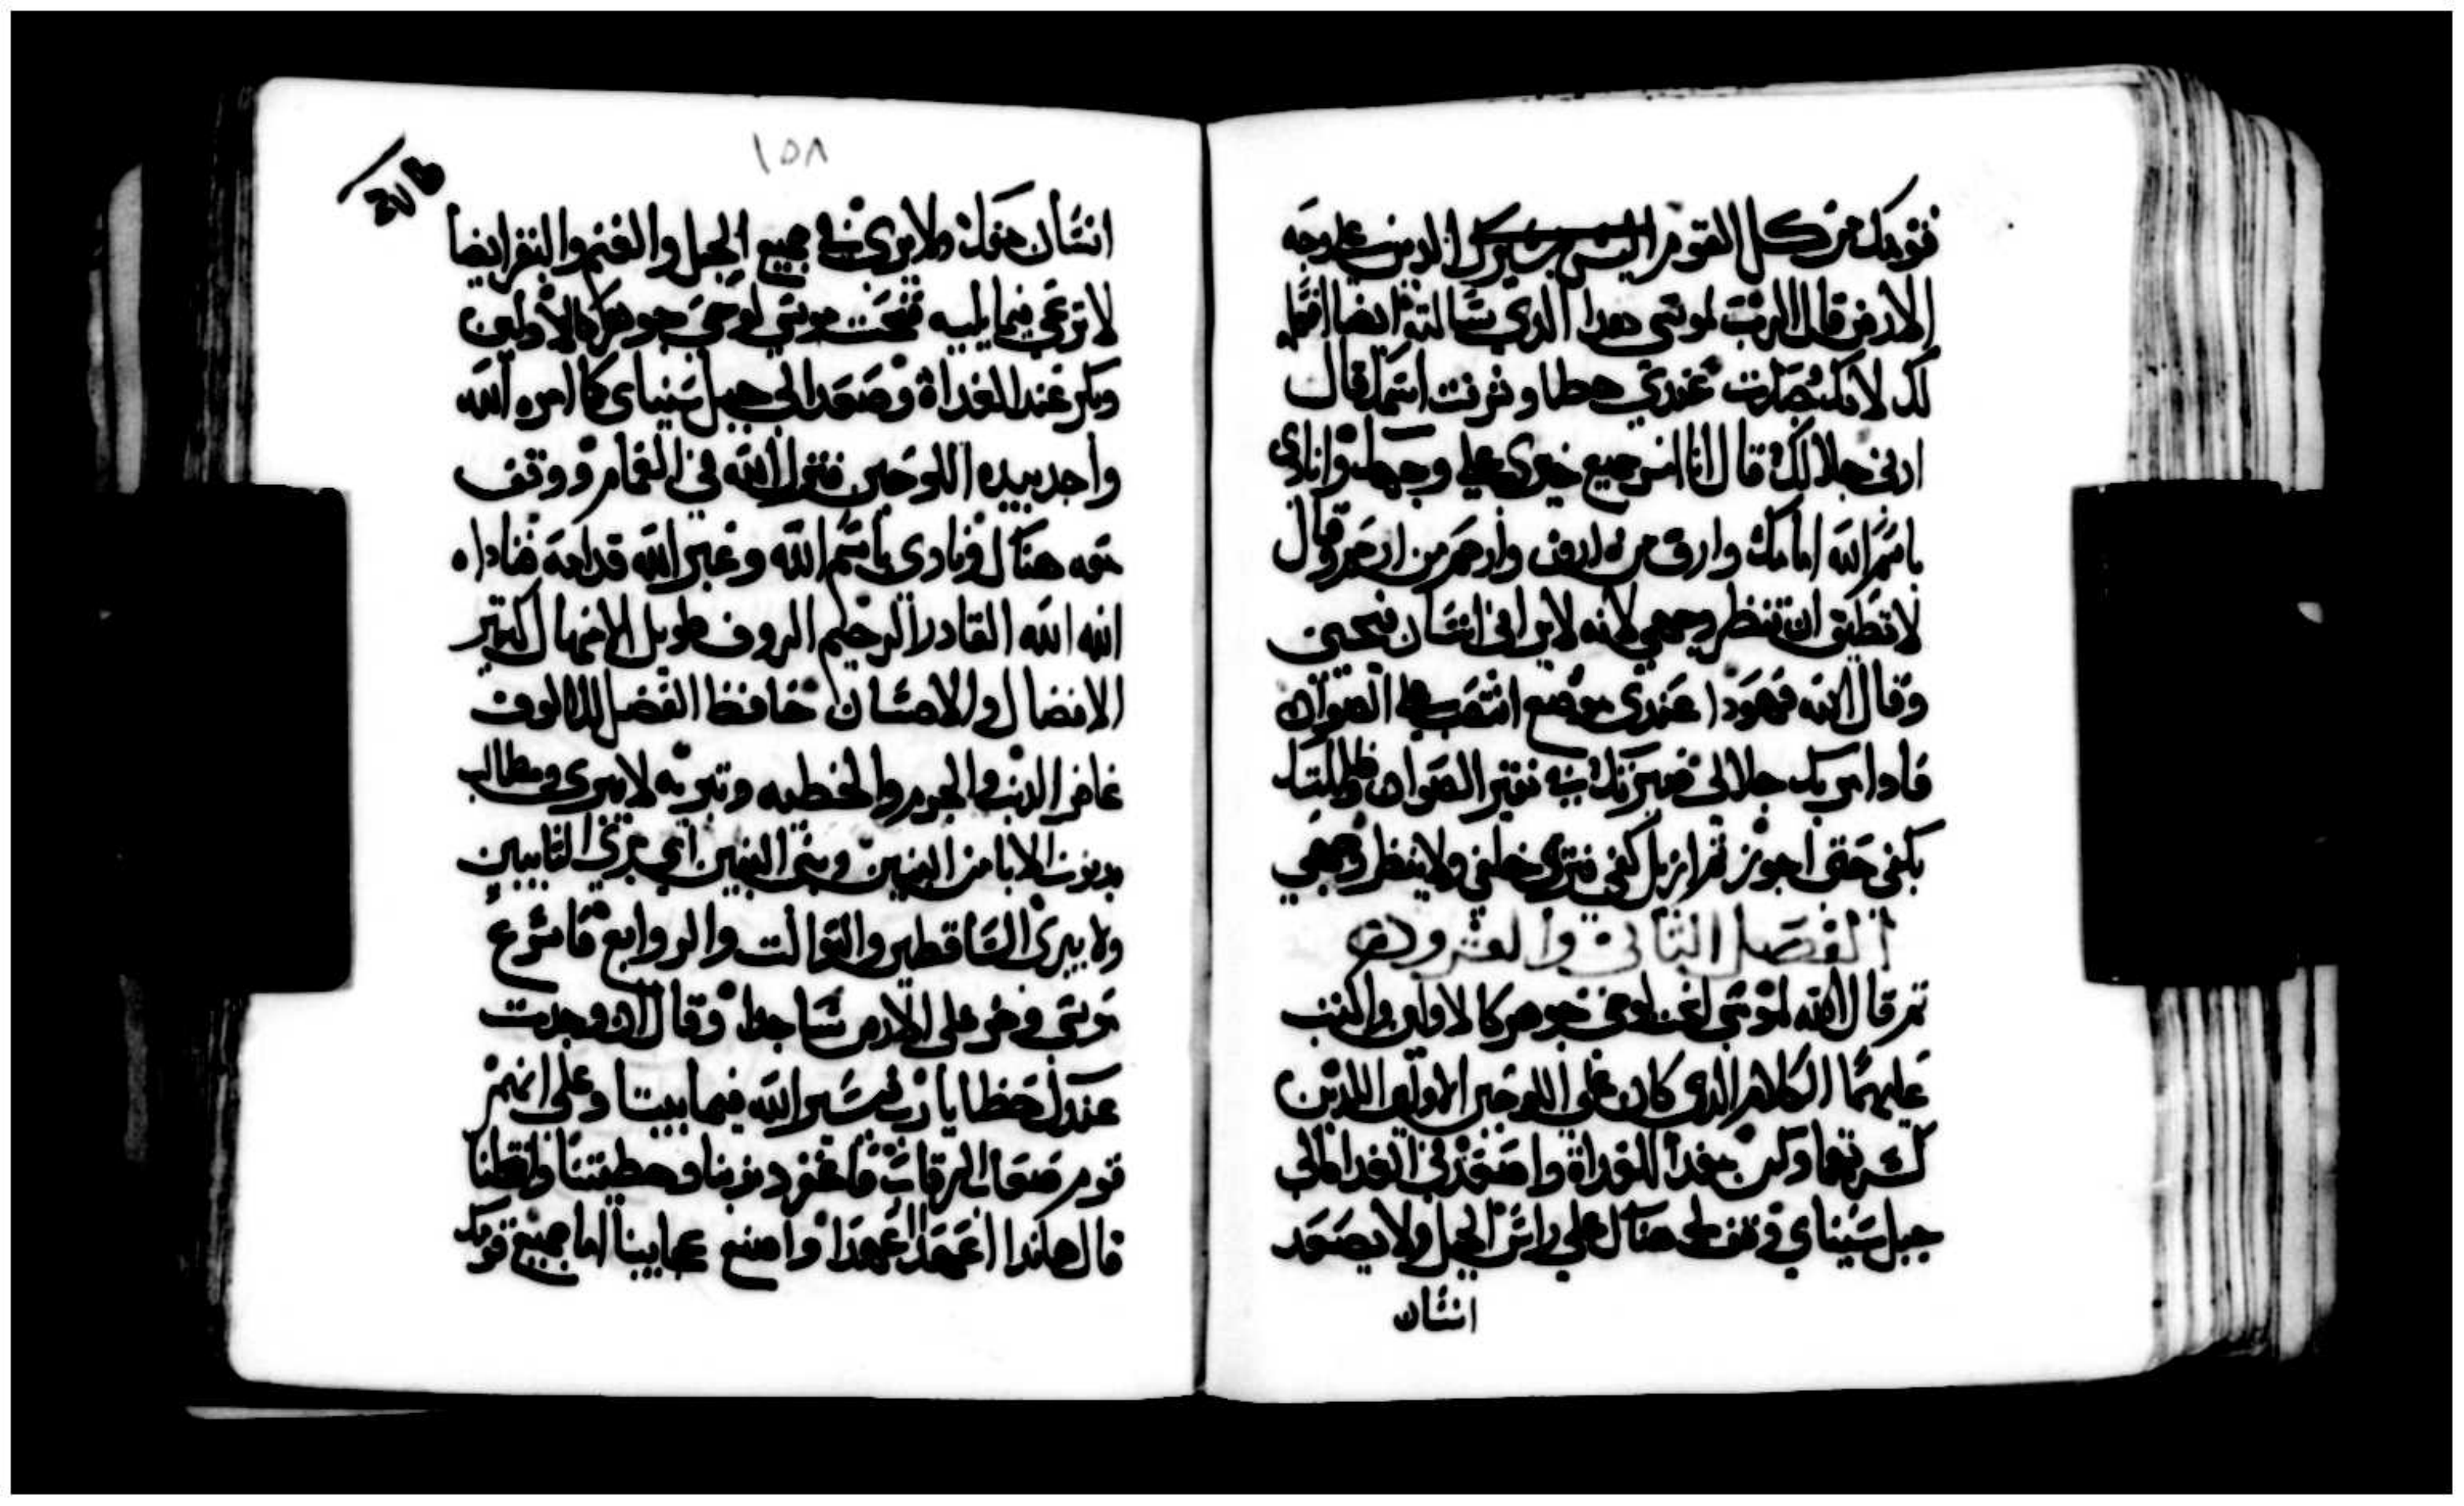 قومك من كل القوم الدين على وجه
الارض قال الرب لموسى هدا الدي سالته ايضا افعله
لك لانك صادفت عندي حظا وعرفت اسمك قال
ارني جلالك قال انا امر جميع خيري على وجهك وانادي
باسم الله امامك واروف من اروف وارحم من ارحم وقال
لا تطيق ان تنظر وجهي لانه لا يراني انسان فيحيى
وقال الله فهودا عندي موضع انتصب على الصوان
فادا مر بك جلالي صيرتك في نقير الصوان وظللتك
بكفي حتى اجوز ثم ازيل كفي فترى خلفي ولا ينظر وجهي
الفصل الثاني والعشرون
تم قال الله لموسى انحت لوحي جوهر كالاولين واكتب
عليهما الكلام الدي كان على اللوحين الاولين اللدين
كسرتهما وكن معدا للغداة واصعد في الغداة الى
جبل سيناي وقف لي هناك على راس الجبل ولا يصعد
انسان
١٥٨
انسان معك ولا يرى في جميع الجبل والغنم والبقر ايضا
لا ترعى فيما يليه فنحت موسى لوحي جوهر كالاولين
وبكر عند الغداة وصعد الى جبل سيناي كما امره الله
واخد بيده اللوحين فنزل الله في الغمام ووقف
معه هناك ونادى باسم الله وعبر الله قدامه فناداه
الله الله القادر الرحيم الروف طويل الامهال كتير
الافضال والاحسان حافظ الفضل للالوف
غافر الدنب والجرم والخطيه وتبريه لا يبري ومطالب
بدنوب الابا من البنين وبني البنين اي يبري التايبين
ولا يبري الساقطين والتوالت والروابع فاسرع
موسى وخر على الارض ساجدا وقال ان وجدت
عندك حظا يا رب يسير الله فيما بيننا وعلى انهم
قوم صعاب الرقاب فاغفر دنوبنا وخطيتنا
قال هاندا اعهد عهدا واصنع عجايبا امام جميع قومك